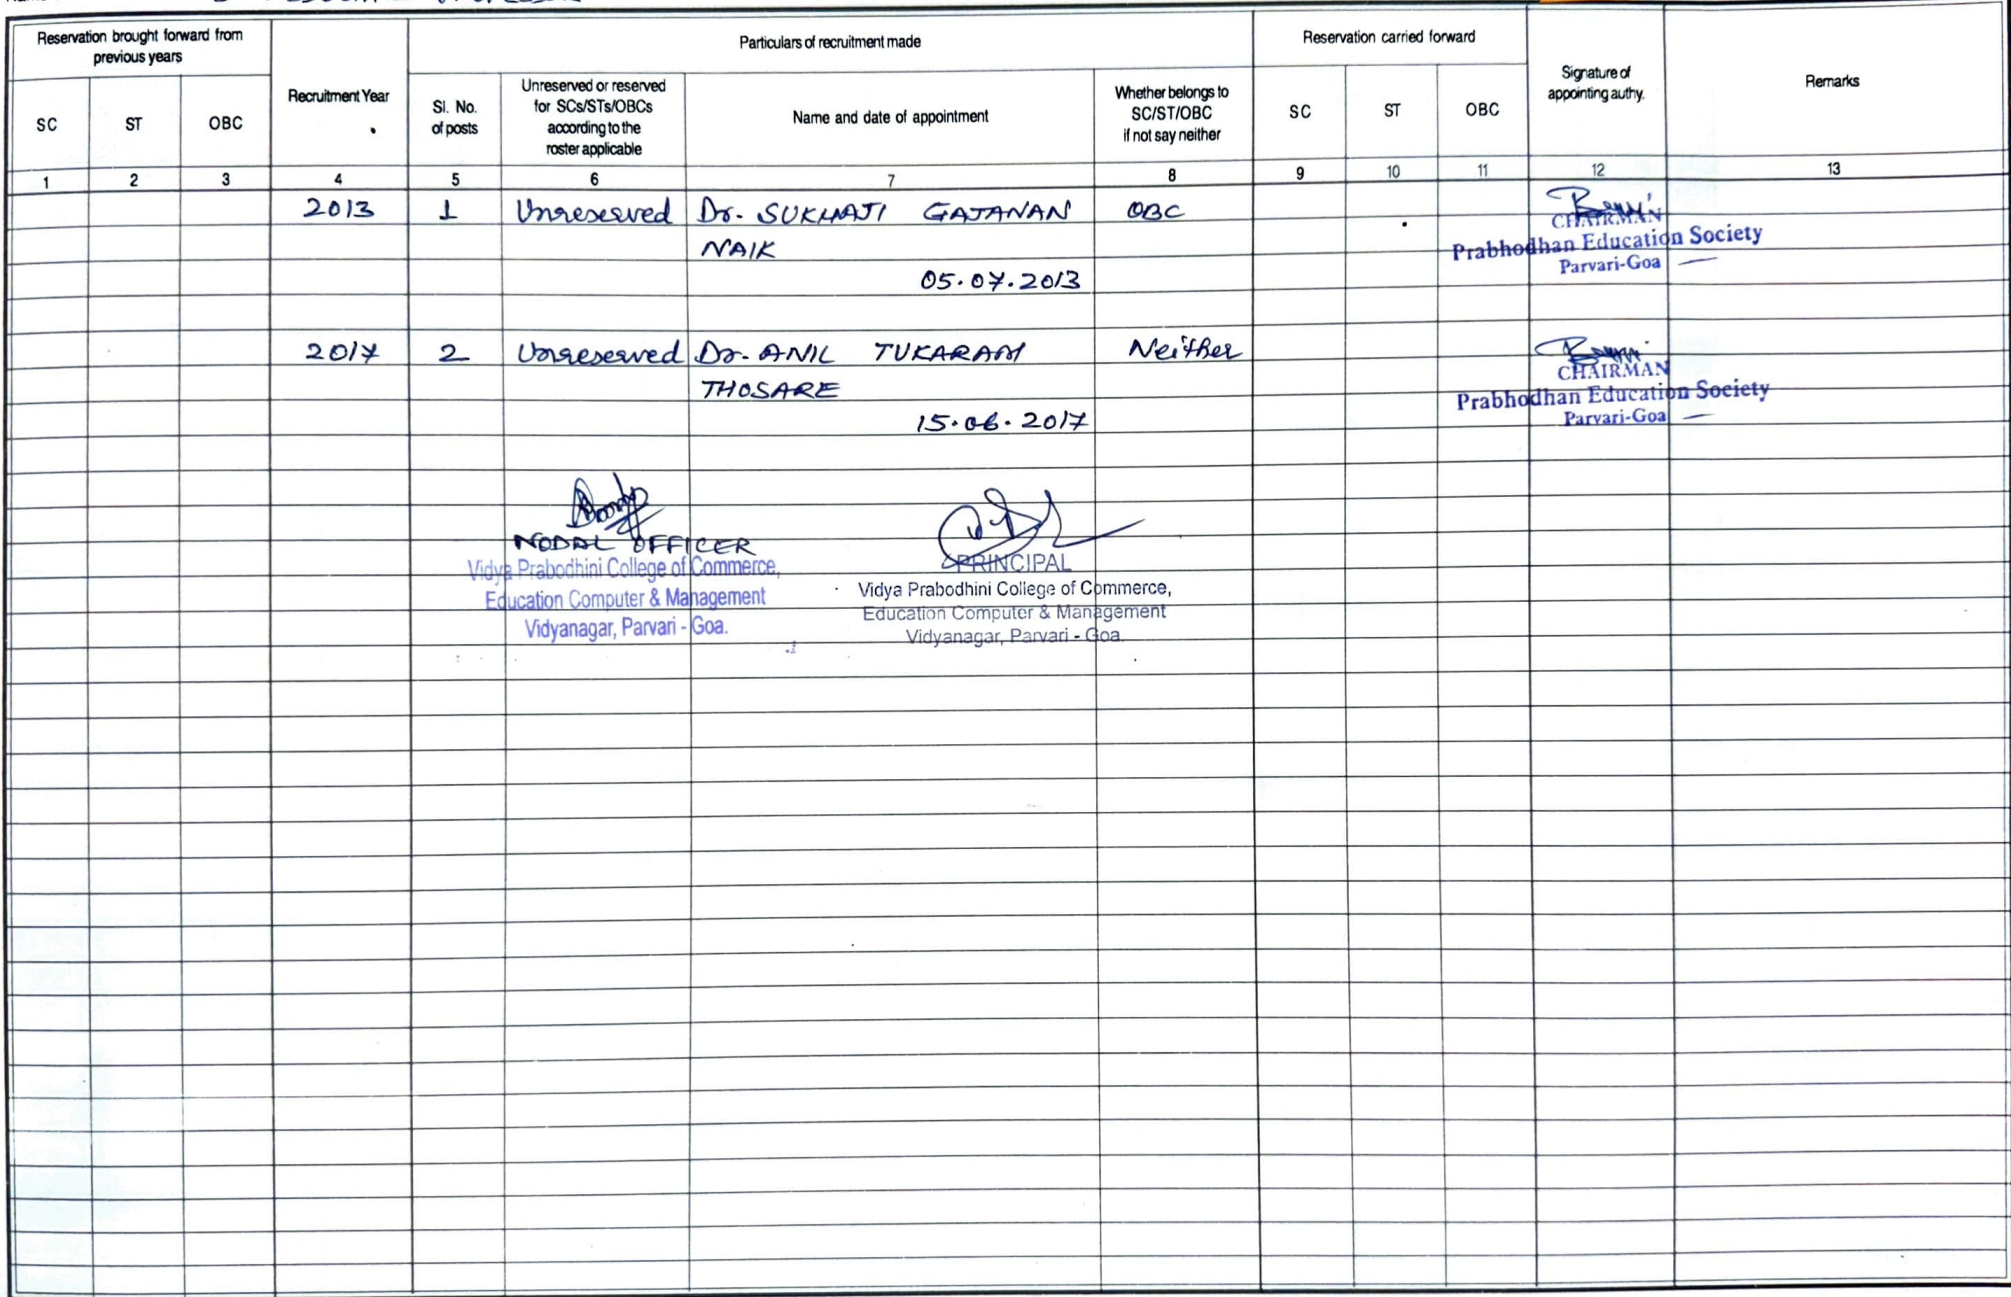 Reservation brought forward from
previous years
Recruitment Year
Particulars of recruitment made
Reservation carried forward
Signature of
appointing authy.
Remarks
SC
ST
OBC
Sl. No.
of posts
Unreserved or reserved
for SCs/STs/OBCs
according to the
roster applicable
Name and date of appointment
Whether belongs to
SC/ST/OBC
if not say neither
SC
ST
OBC
1 2 3 4 5 6 7 8 9 10 11 12 13
2013 1 Unreserved Dr. SUKHAJI GAJANAN OBC
NAIK
05.07.2013
CHAIRMAN
Prabhodhan Education Society
Parvari-Goa
2017 2 Unreserved Dr. ANIL TUKARAM Neither
THOSARE
15.06.2017
CHAIRMAN
Prabhodhan Education Society
Parvari-Goa
NODAL OFFICER
Vidya Prabodhini College of Commerce,
Education Computer & Management
Vidyanagar, Parvari - Goa.
PRINCIPAL
Vidya Prabodhini College of Commerce,
Education Computer & Management
Vidyanagar, Parvari - Goa.